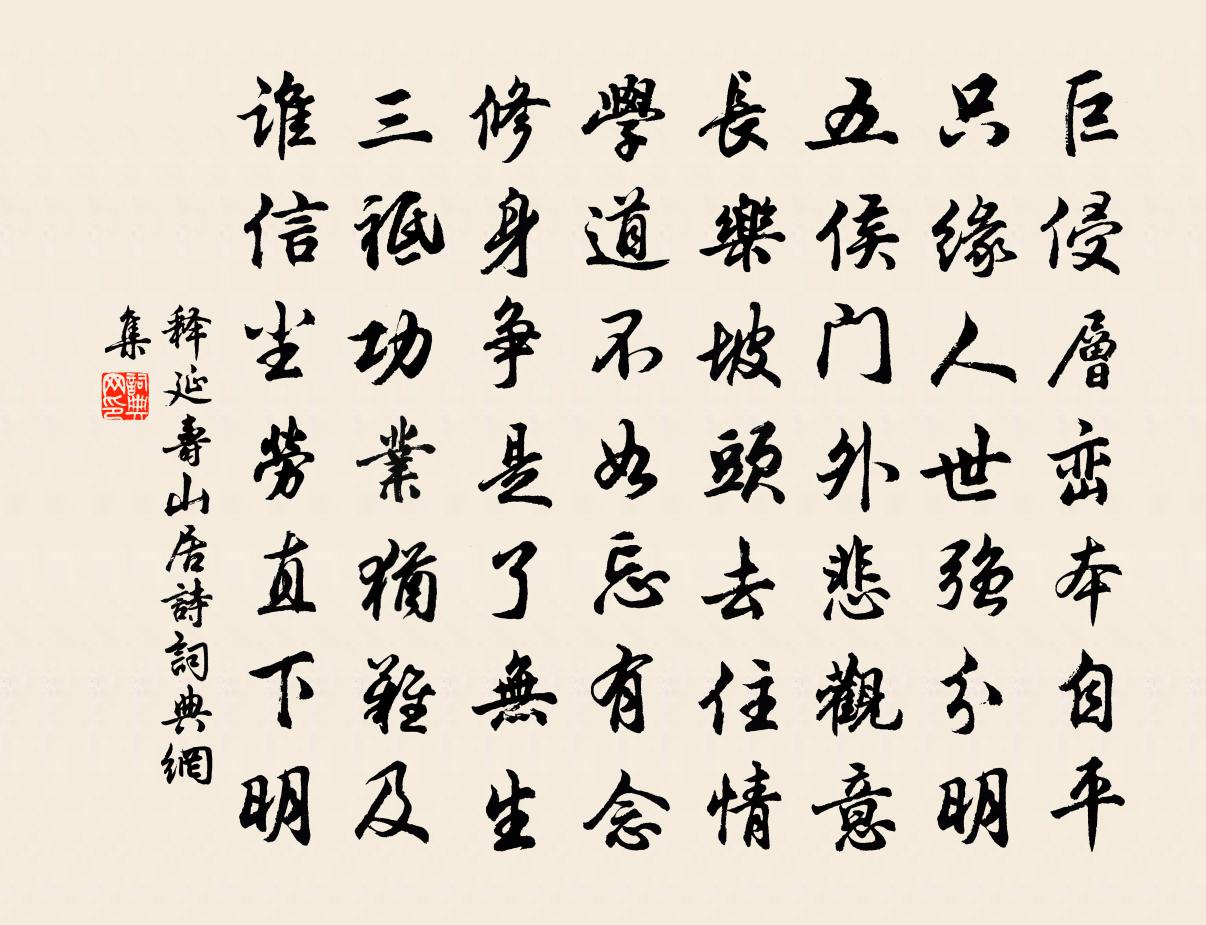 巨侵層巒本自平
只緣人世強分明
五侯門外悲觀意
長樂坡頭去住情
學道不如忘有念
修身爭是了無生
三祇功業猶難及
誰信尘勞直下明
释延壽山居詩詞典網
集
詞典
网印